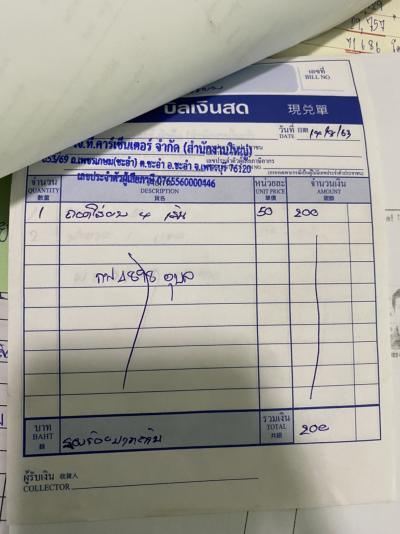 29,757
71686
เลขที่
BILL NO.
บิลเงินสด 現兌單
วันที่ 日期
DATE
จ.ที.คาร์เซ็นเตอร์ จำกัด (สำนักงานใหญ่)
เลขประจำตัวผู้เสียภาษีอากร
53/69 ถ.เพชรเกษม(ชะอำ) ต.ชะอำ อ.ชะอำ จ.เพชรบุรี 76120
เลขประจำตัวผู้เสียภาษี 0765560000446
จำนวน หน่วยละ จำนวนเงิน
QUANTITY DESCRIPTION UNIT PRICE AMOUNT
數量 貨名 單價 銀額
1 ถอดใส่ยาง 4 เส้น 50 200
2
อุบล
บาท รวมเงิน
BAHT TOTAL 200
銖 共銀
สองร้อยบาทถ้วน
ผู้รับเงิน 收貨人
COLLECTOR